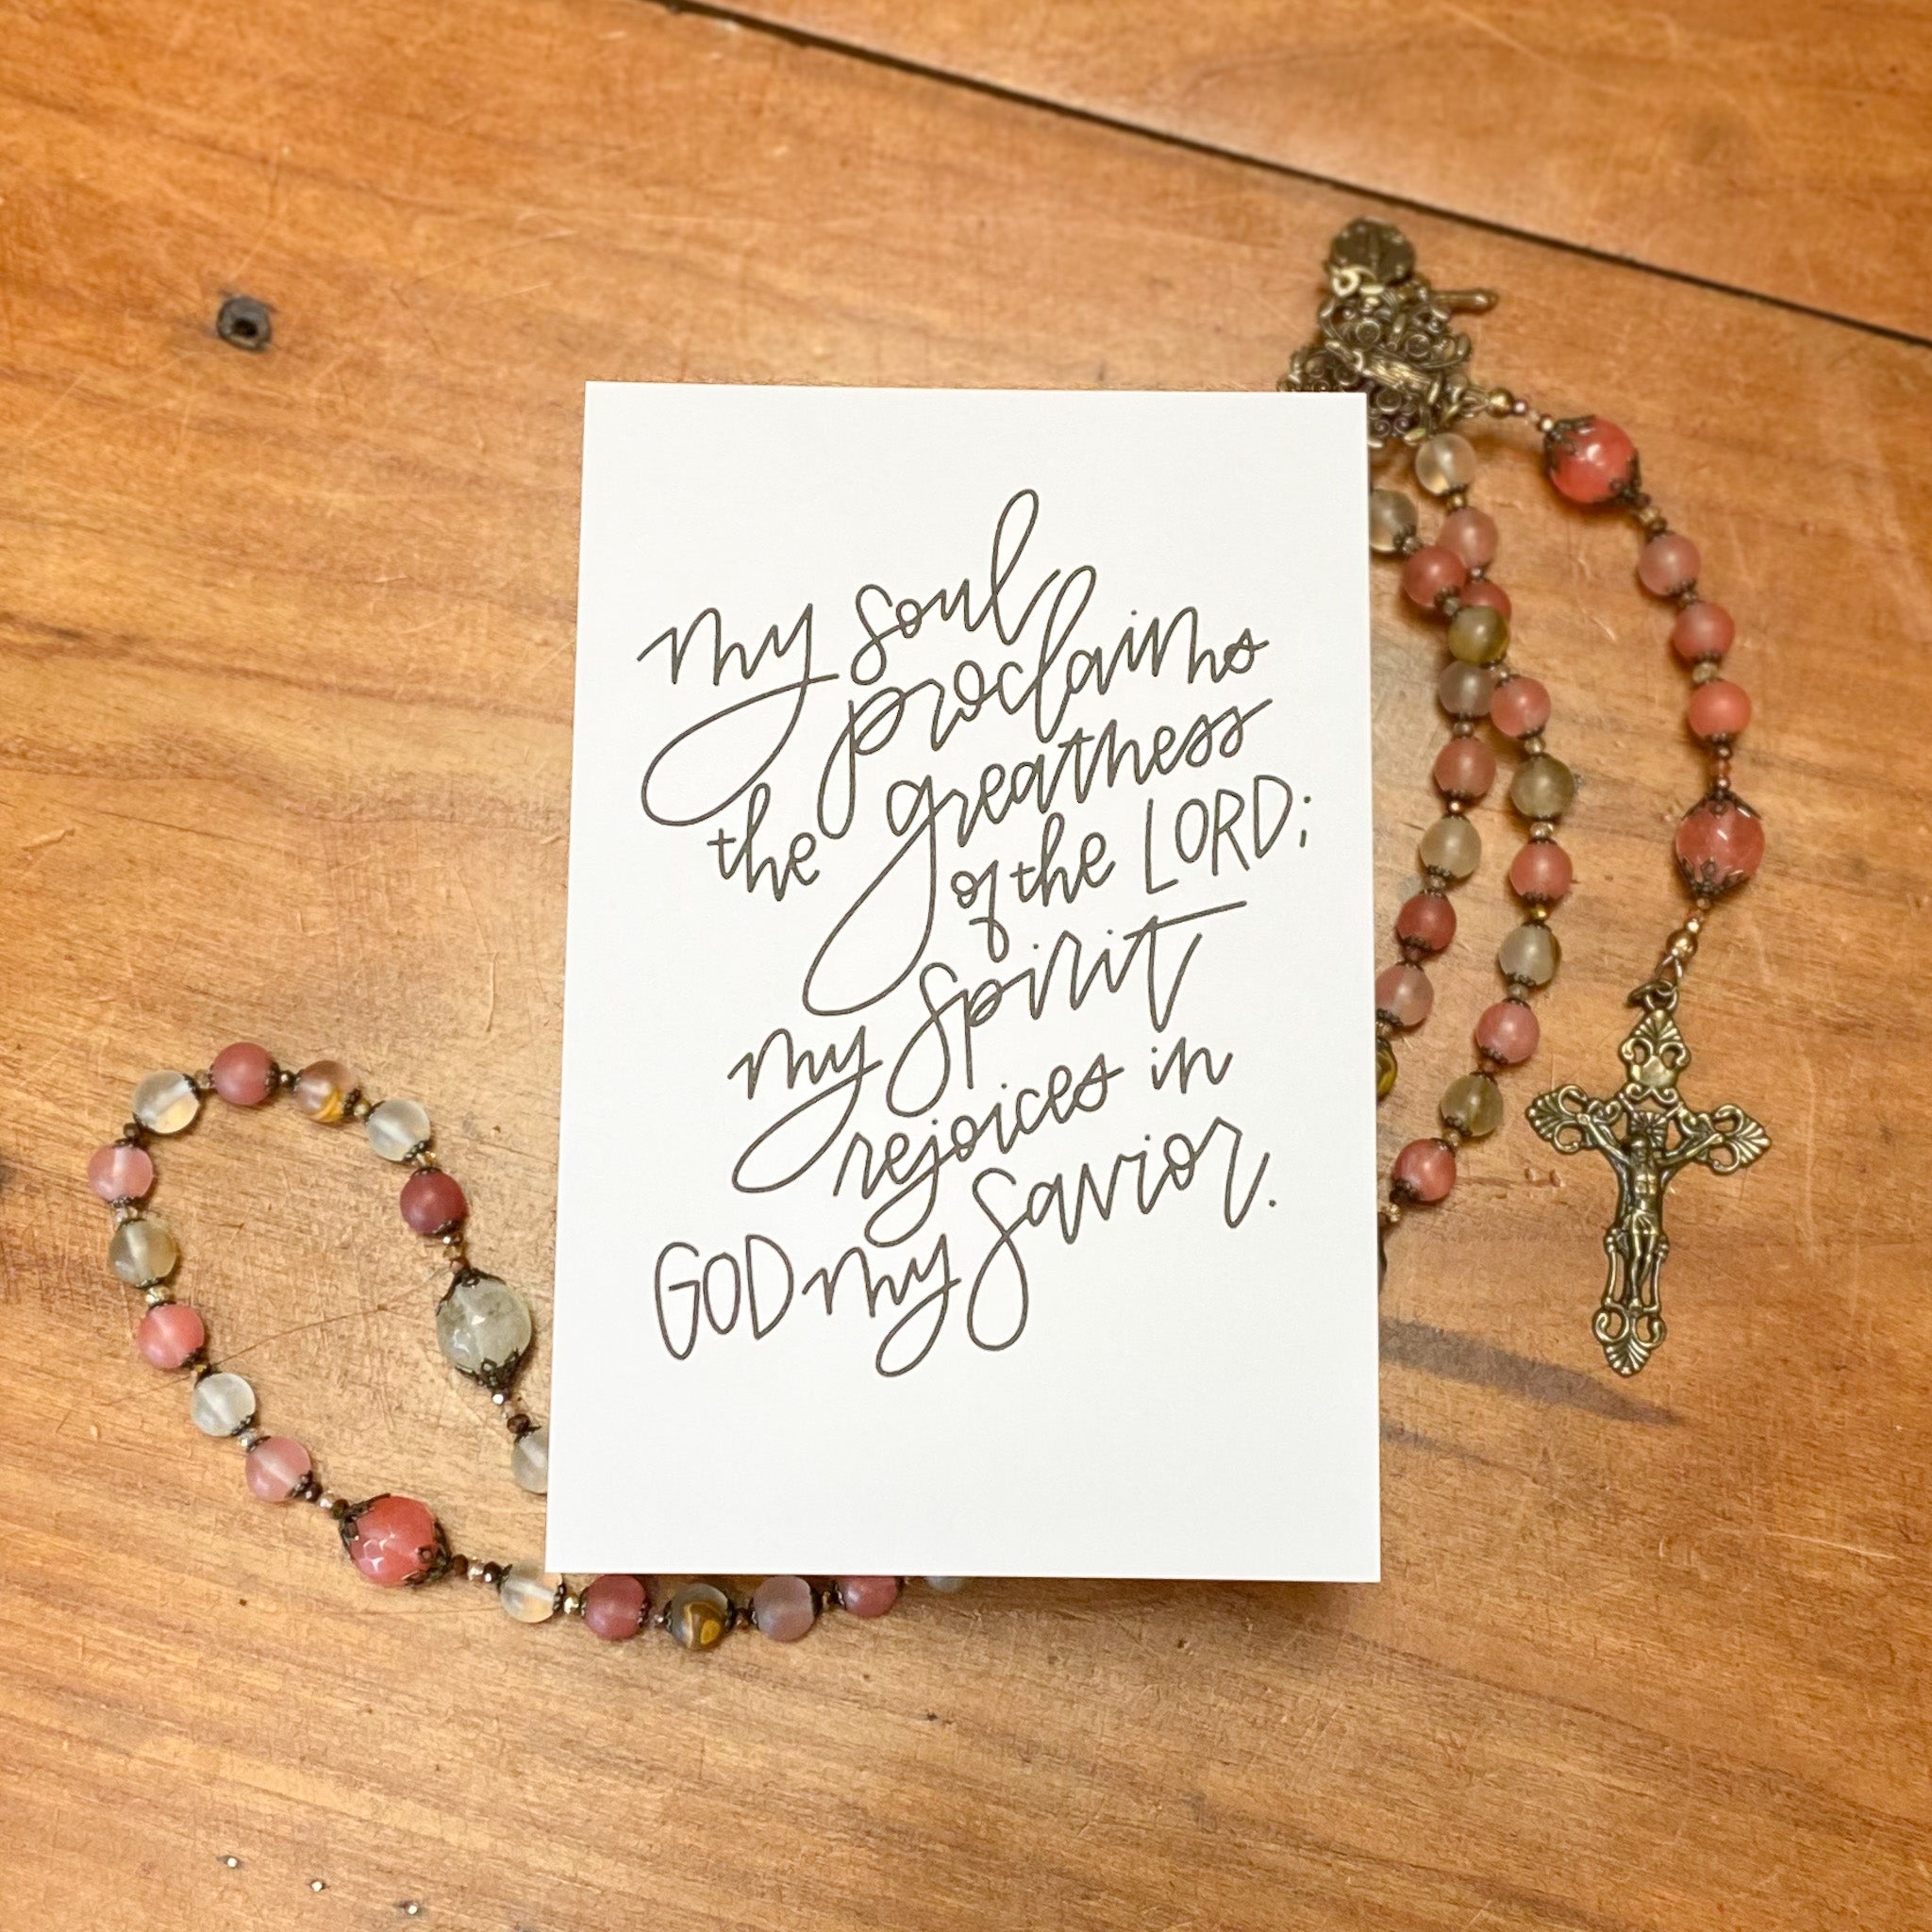 my soul
proclaims
the greatness
of the LORD;
my spirit
rejoices in
GOD my savior.